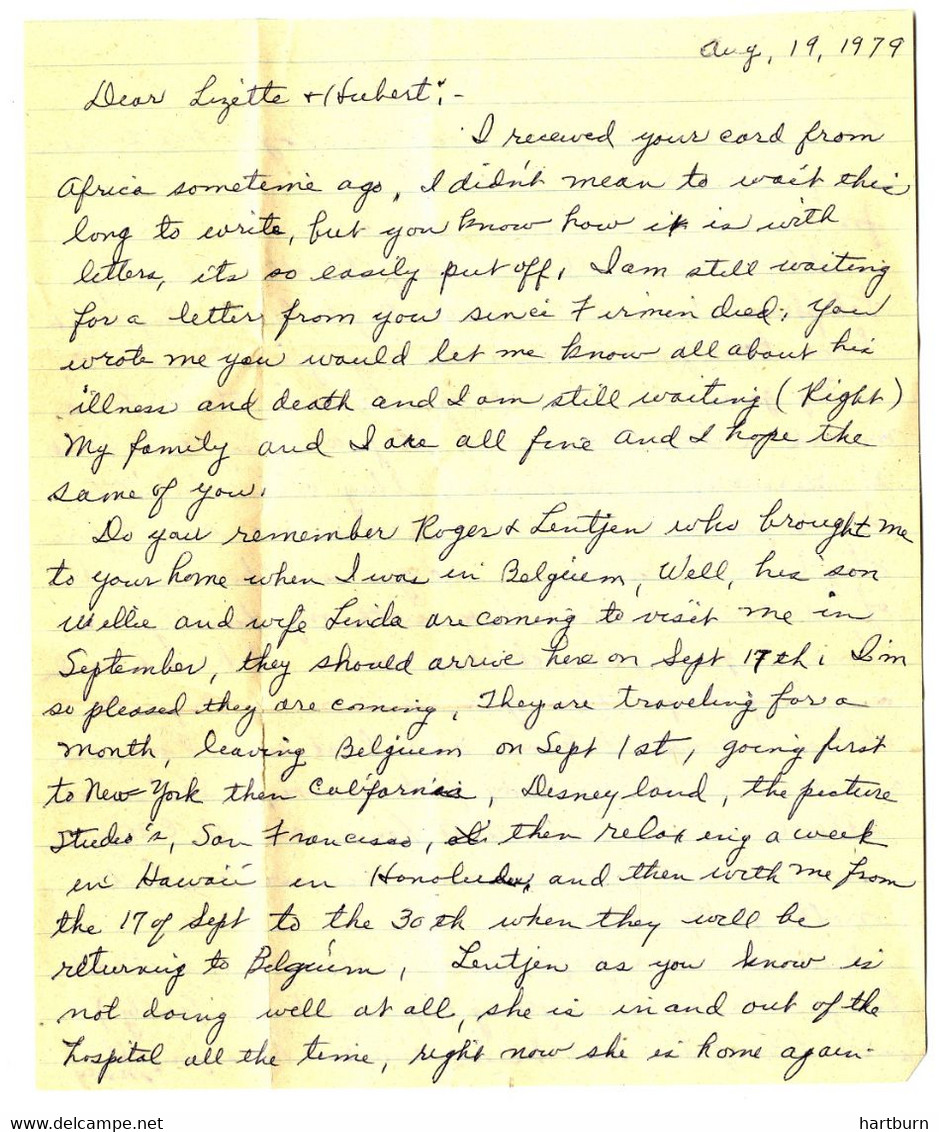 Aug, 19, 1979
Dear Lizette + Hubert;-
I received your card from
Africa sometime ago, I didn't mean to wait this
long to write, but you know how it is with
letters, its so easily put off, I am still waiting
for a letter from you since Firmin died, You
wrote me you would let me know all about his
illness and death and I am still waiting (Right)
My family and I are all fine and I hope the
same of you.
Do you remember Roger & Lentjen who brought me
to your home when I was in Belguiem, Well, his son
Willie and wife Linda are coming to visit me in
September, they should arrive here on Sept 17th, I'm
so pleased they are coming, They are traveling for a
month, leaving Belguiem on Sept 1st, going first
to New York then California, Disneyland, the picture
Studio's, San Francisco, then relaxing a week
in Hawaii in Honolulu, and then with me from
the 17 of Sept to the 30th when they will be
returning to Belguim, Lentjen as you know is
not doing well at all, she is in and out of the
hospital all the time, right now she is home again-
www.delcampe.net
hartburn